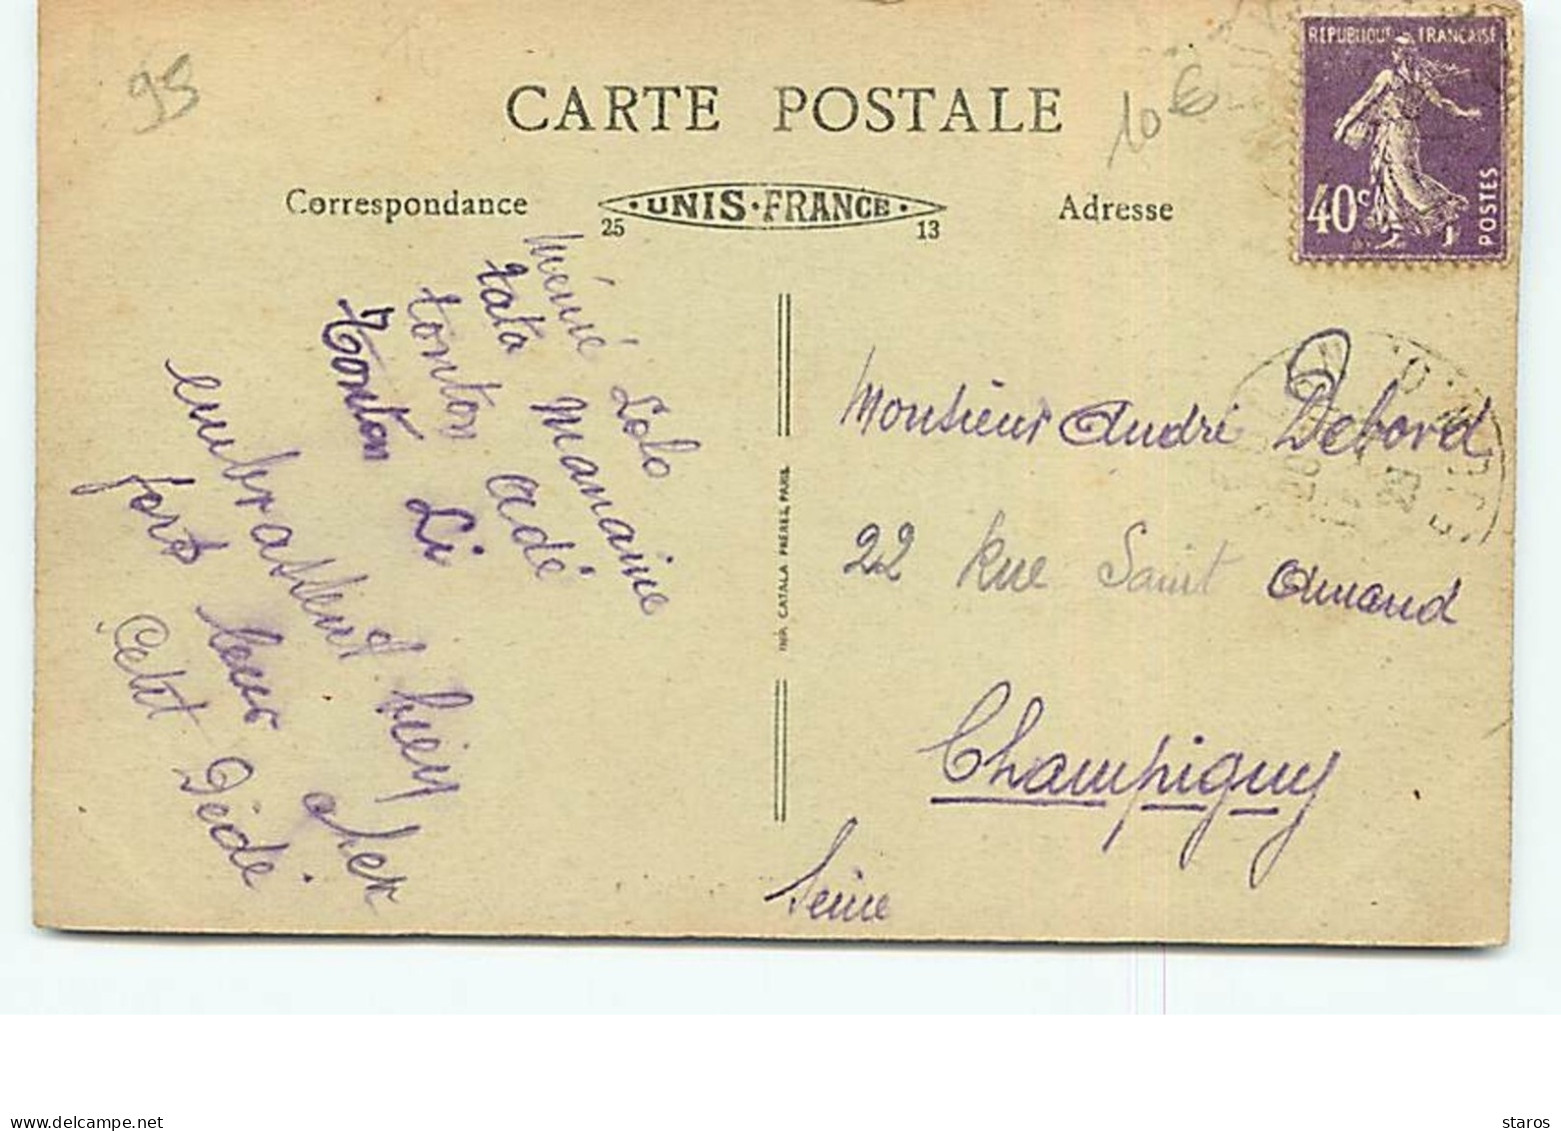 95
CARTE POSTALE
10 €
REPUBLIQUE FRANÇAISE
40c
POSTES
Correspondance
·UNIS·FRANCE·
25 13
Adresse
mémé Lolo
tata Manaine
tonton Adé
tonton Li
embrassent bien
fort leur cher
Petit Dédé.
IMP. CATALA FRÈRES, PARIS.
Monsieur André Debord
22 Rue Saint Amand
Champigny
Seine
delcampe.net
staros